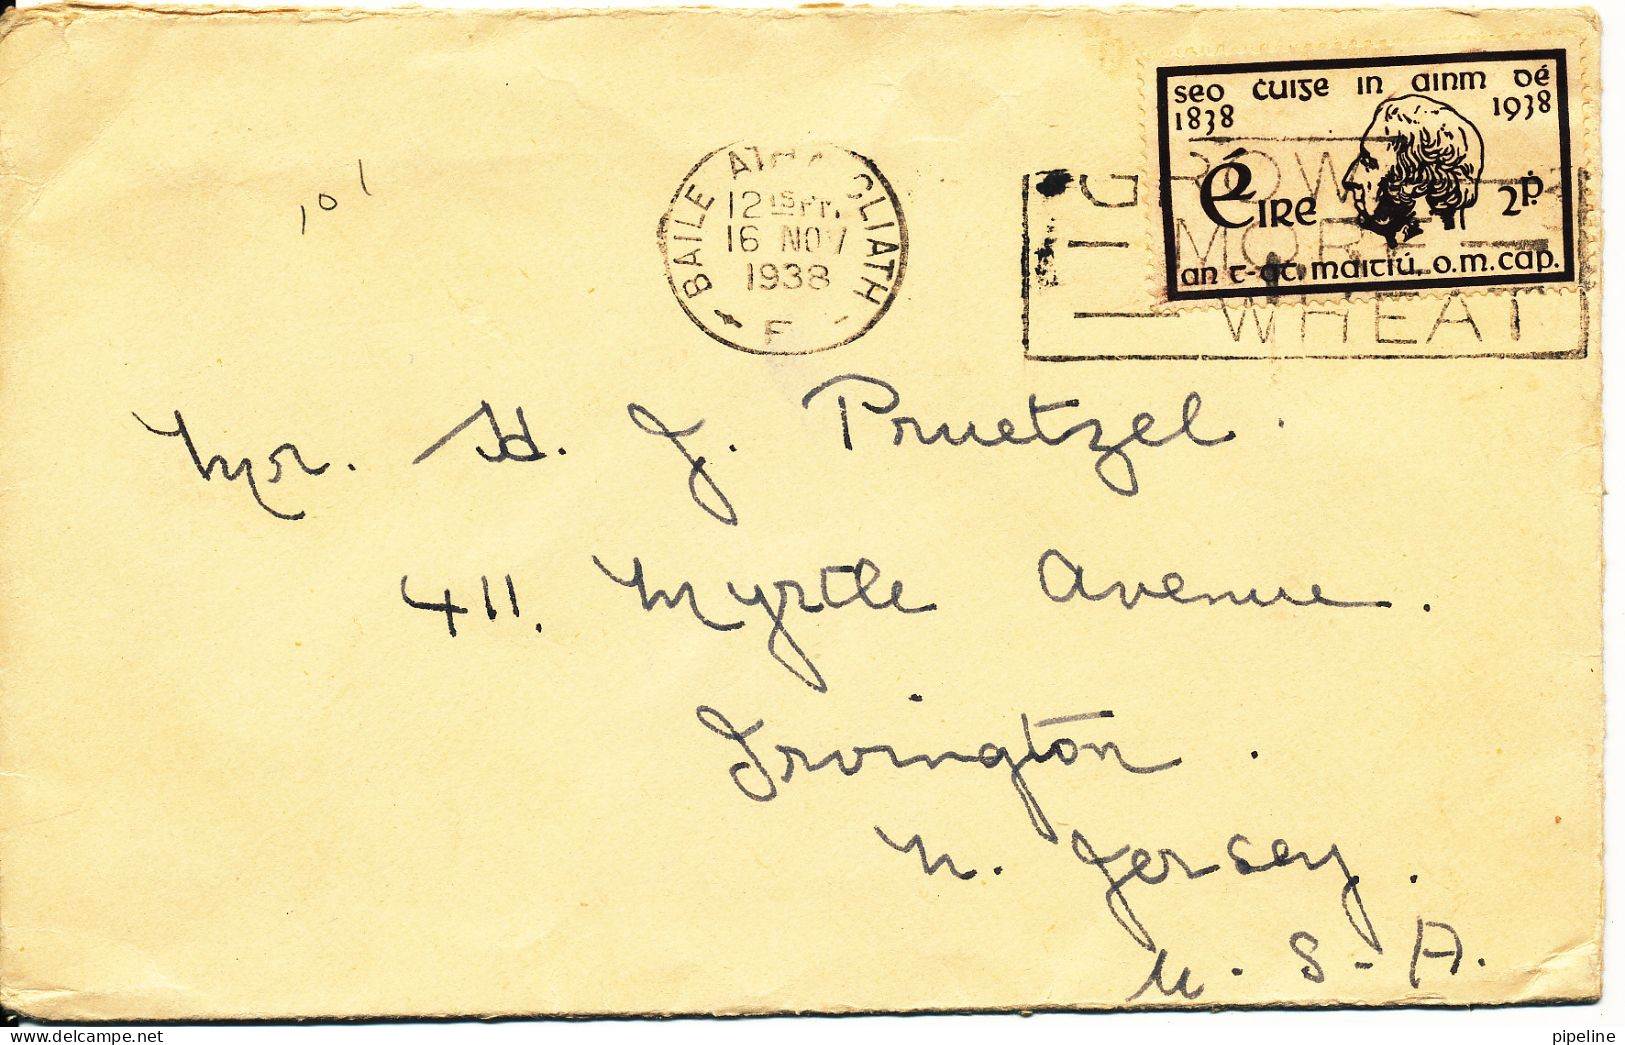 seo ċuiᵹe in ainm dé
1838 1938
Éire 2ṗ.
an t-at. maitiú, o.m. cap.
BAILE CLIATH
12 15 PT.
16 NOV
1938
F
GROW
MORE
WHEAT
101
Mr. H. J. Pruetzel.
411. Myrtle Avenue.
Irvington.
N. Jersey.
U.S.A.
pipeline